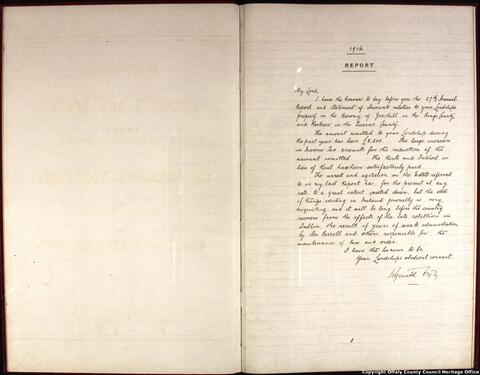 1916.
REPORT
My Lord,
I have the honour to lay before you the 59th Annual
Report and Statement of Accounts relative to your Lordship's
property in the Barony of Geashill in the King's County,
and in the Queen's County.
The amount remitted to your Lordship during
the past year has been £8,500. The large increase
in Income Tax accounts for the reduction of the
amount remitted. The Rents and Interest in
lieu of Rent have been satisfactorily paid.
The unrest and agitation on the Estate referred
to in my last Report has, for the present at any
rate, to a great extent quieted down, but the state
of things existing in Ireland generally is very
disquieting, and it will be long before the country
recovers from the effects of the late rebellion in
Dublin, the result of years of weak administration
by Mr Birrell and others responsible for the
maintenance of law and order.
I have the honour to be,
Your Lordship's obedient servant.
Reginald Digby
Copyright Offaly County Council Heritage Office